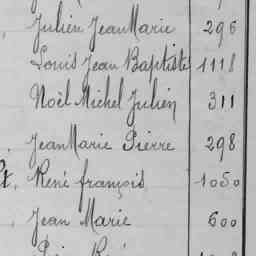 Julien Jean Marie 296
Louis Jean Baptiste 1118
Noël Michel Julien 311
Jean Marie Pierre 298
René françois 1050
Jean Marie 600